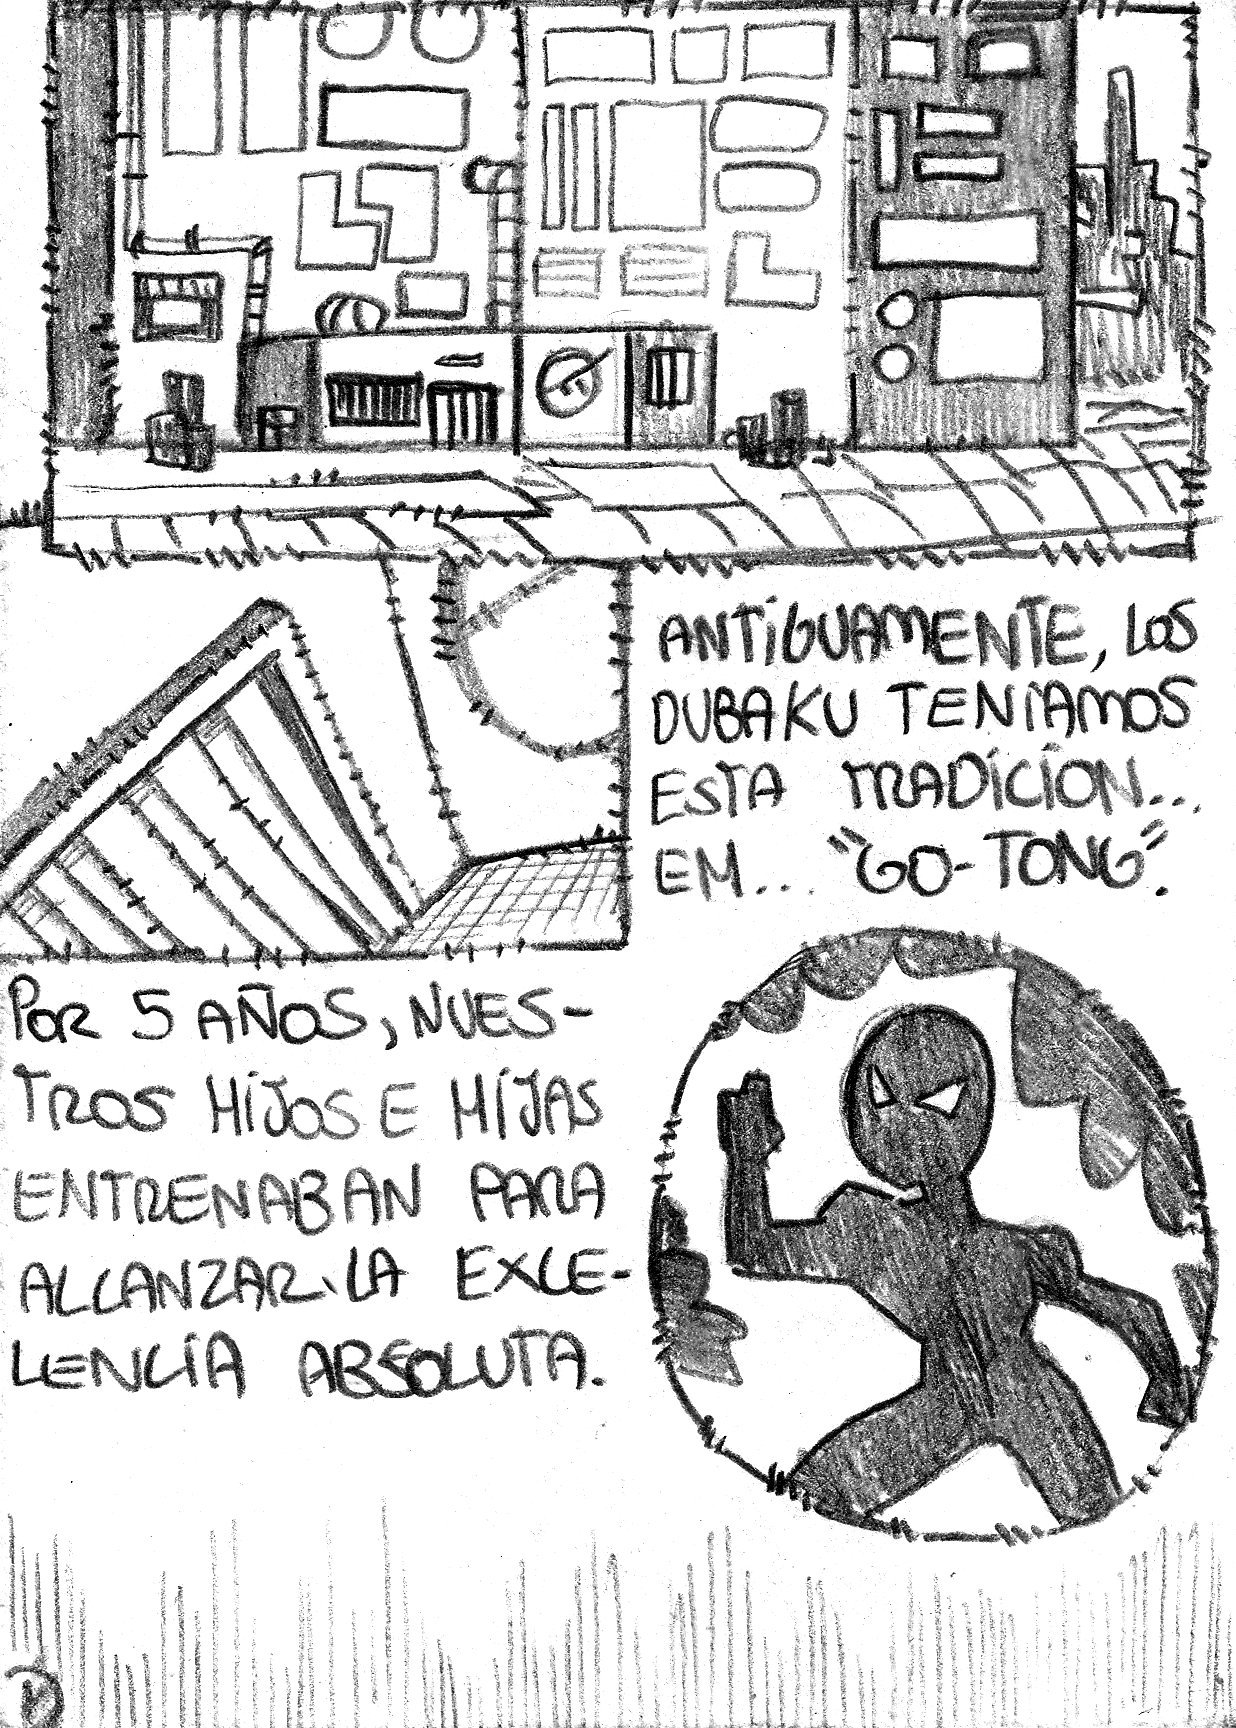 ANTÍGUAMENTE, LOS
DUBAKU TENÍAMOS
ESTA TRADÍCÍON...
EM... "GO-TONG".
POR 5 AÑOS, NUES-
TROS HÍJOS E HÍJAS
ENTRENABAN PARA
ALCANZAR LA EXCE-
LENCÍA ABSOLUTA.